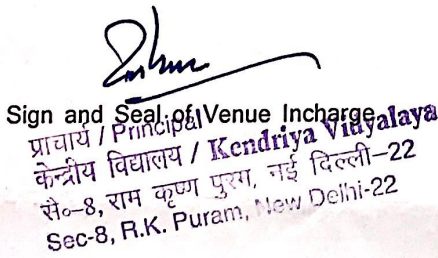 Sign and Seal of Venue Incharge
प्राचार्य / Principal
केन्द्रीय विद्यालय / Kendriya Vidyalaya
सै०-8, राम कृष्ण पुरम, नई दिल्ली-22
Sec-8, R.K. Puram, New Delhi-22